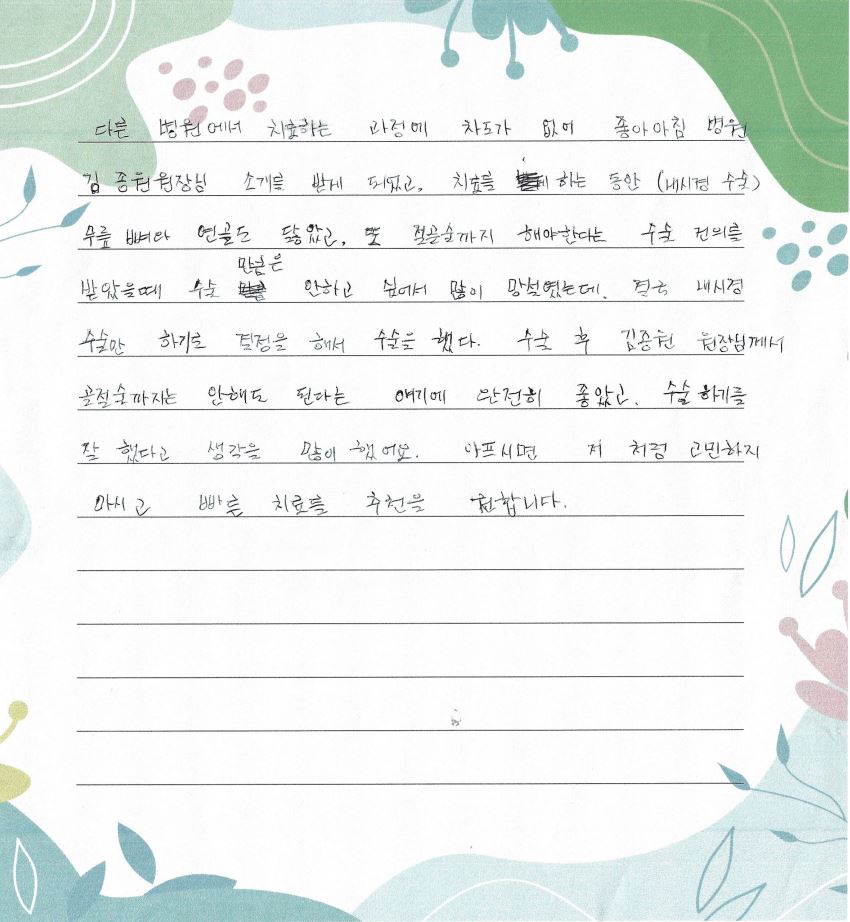 다른 병원에서 치료하는 과정에 차도가 없어 좋아아침 병원
김 종원원장님 소개를 받게 되었고, 치료를 하는 동안 (내시경 수술)
무릎 뼈와 연골도 닳았고, 또 절골술까지 해야한다는 수술 건의를
만큼은
받았을때 수술 안하고 싶어서 많이 망설였는데. 결국 내시경
수술만 하기로 결정을 해서 수술을 했다. 수술 후 김종원 원장님께서
골절술까지는 안해도 된다는 얘기에 완전히 좋았고. 수술하기를
잘 했다고 생각을 많이 했어요. 아프시면 저 처럼 고민하지
마시고 빠른 치료를 추천을 원합니다.